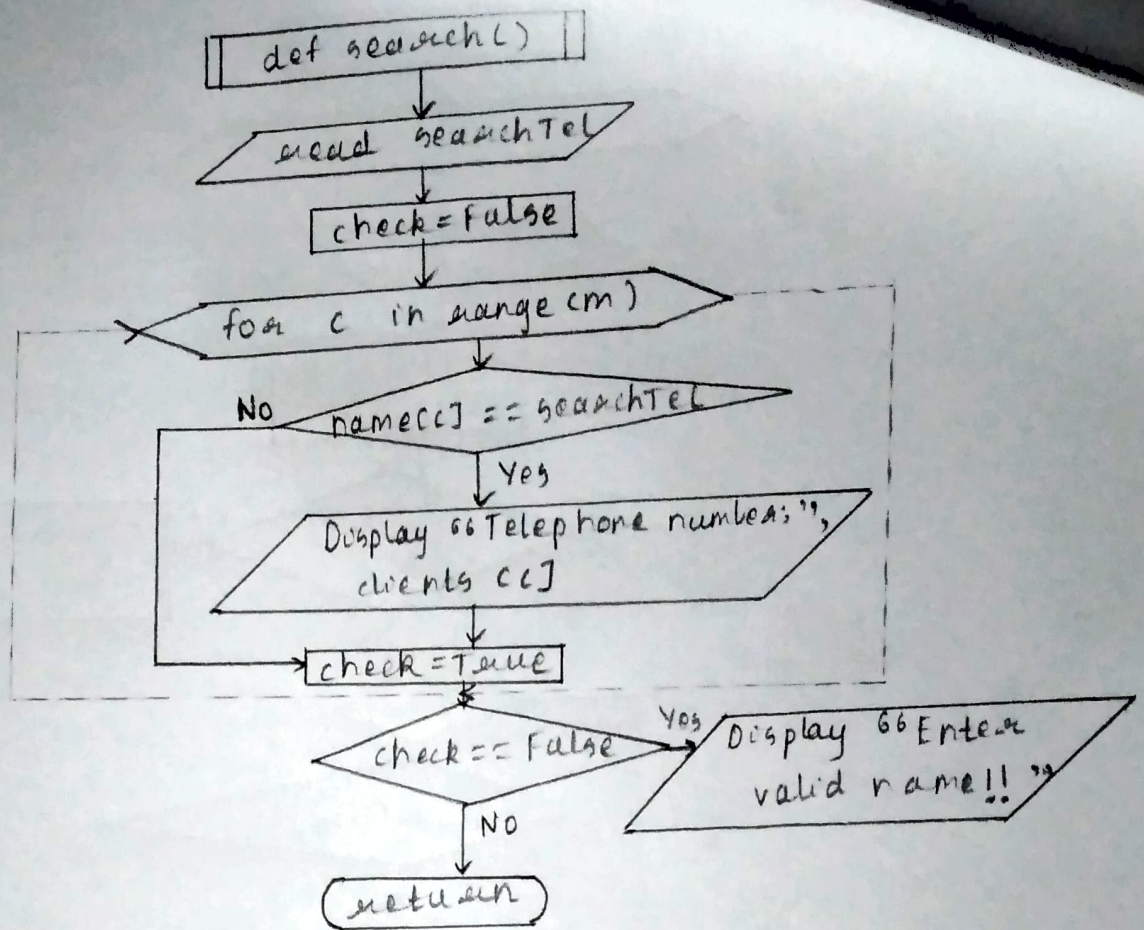 def search()
read searchTel
check = False
for c in range(m)
No
name[c] == searchTel
Yes
Display “Telephone number:”,
clients[c]
check = True
check == False
Yes
Display “Enter
valid name!!”
NO
return